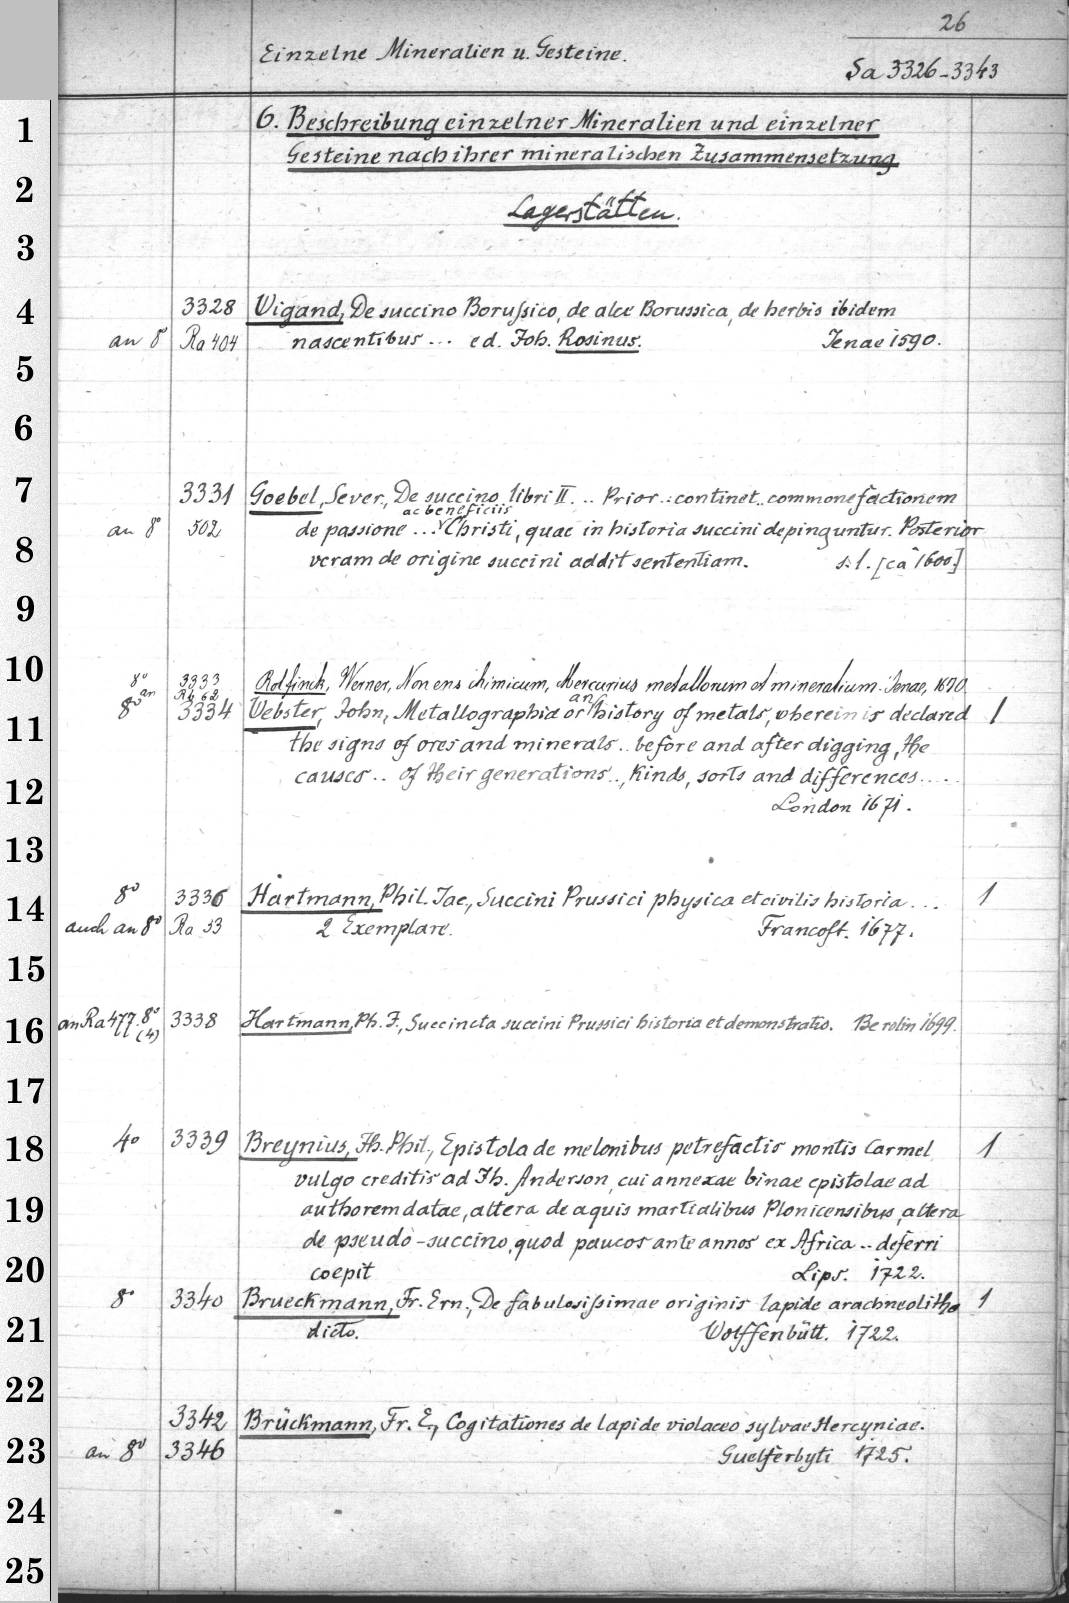 26
Einzelne Mineralien u. Gesteine.
Sa 3326-3343
1
6. Beschreibung einzelner Mineralien und einzelner
Gesteine nach ihrer mineralischen Zusammensetzung
2
Lagerstätten.
3
4
3328 Wigand, De succino Borussico, de alce Borussica, de herbis ibidem
an 8° Ra 404 nascentibus ... ed. Joh. Rosinus. Jenae 1590.
5
6
7
3331 Goebel, Sever., De succino libri II ... Prior .. continet .. commonefactionem
ac beneficiis
an 8° 502 de passione ... Christi, quae in historia succini depinguntur. Posterior
8
veram de origine succini addit sententiam. s. l. [ca 1600.]
9
10
8° 3333 Rolfinck, Werner, Non ens chimicum, Mercurius metallorum et mineralium. Jenae, 1670
an Rb 62
8° 3334 Webster, John, Metallographia or an history of metals, wherein is declared 1
11
the signs of ores and minerals .. before and after digging, the
causes .. of their generations .., kinds, sorts and differences ....
12
London 1671.
13
8° 3336 Hartmann, Phil. Jac., Succini Prussici physica et civilis historia ... 1
14
auch an 8° Ra 53 2 Exemplare. Francoft. 1677.
15
an Ra 477. 8° (4) 3338 Hartmann, Ph. J., Succincta succini Prussici historia et demonstratio. Berolin 1699.
16
17
4° 3339 Breynius, Jh. Phil., Epistola de melonibus petrefactis montis Carmel 1
18
vulgo creditis ad Jh. Anderson, cui annexae binae epistolae ad
19
authorem datae, altera de aquis martialibus Plonicensibus, altera
de pseudo-succino, quod paucos ante annos ex Africa .. deferri
20
coepit Lips. 1722.
8° 3340 Brueckmann, Fr. Ern., De fabulosissimae originis lapide arachneolitho 1
21
dicto. Wolffenbütt. 1722.
22
3342 Brückmann, Fr. E., Cogitationes de lapide violaceo sylvae Hercyniae.
23
an 8° 3346 Guelferbyti 1725.
24
25